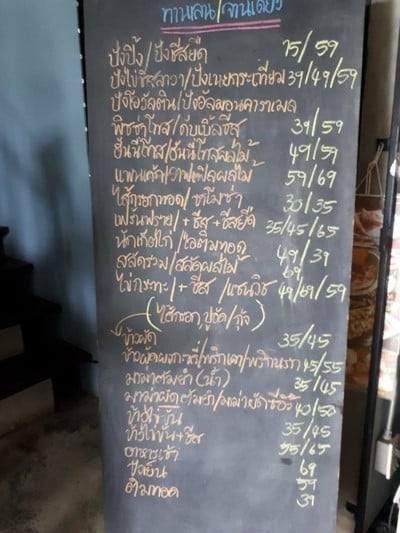 ทานเล่น/จานเดียว
ปังปิ้ง/ปังชีสยืด 25/59
ปังไข่ชีสลาวา/ปังเนยกระเทียม 39/49/59
ปังโอวัลติน/ปังอัลมอนคาราเมล
พิซซ่าโทส/ดับเบิลชีส 39/59
ฮันนี่โทส/ฮันนี่โทสผลไม้ 49/59
แพนเค้ก/วาฟเฟิลผลไม้ 59/69
ไส้กรอกทอด/ซาโมซ่า 30/35
เฟรนฟราย/+ชีส+ชีสยืด 35/45/65
นักเก็ตไก่/ไอติมทอด 49/39
สลัดรวม/สลัดผลไม้ 69
ไข่กระทะ/+ชีส/แซนวิช 49/69/59
(ไส้กรอก,ปูอัด/กุ้ง)
ข้าวผัด 35/45
ข้าวผัดผงกะหรี่/พริกเผา/พริกแกง 45/55
มาม่าต้มยำ (น้ำ) 35/45
มาม่าผัดต้มยำ/มาม่าผัดซีอิ๊ว 40/50
ข้าวไข่ข้น 35/45
ข้าวไข่ข้น+ชีส 55/65
อาหารเช้า 69
ปังเย็น 59
ติมทอด 39